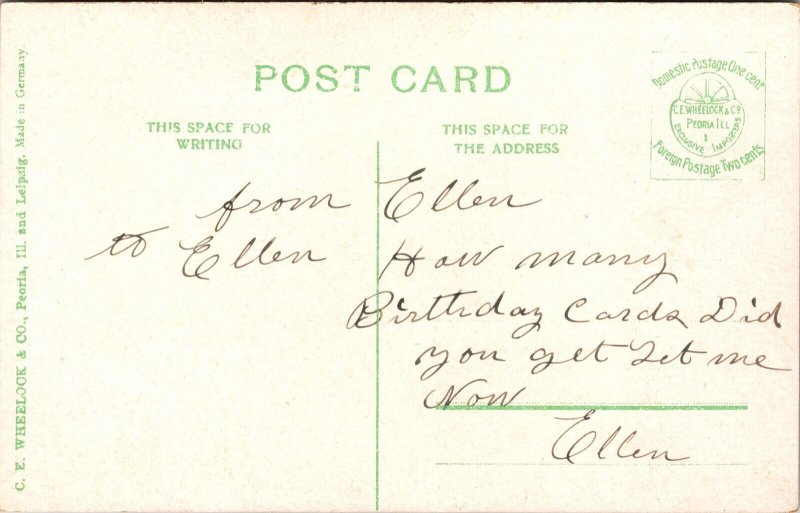 POST CARD
Domestic Postage One cent
C.E. WHEELOCK & CO
PEORIA ILL
1
EXCLUSIVE IMPORTERS
Foreign Postage Two cents
THIS SPACE FOR
WRITING
THIS SPACE FOR
THE ADDRESS
from Ellen
to Ellen How many
Birthday Cards Did
you get Let me
Now
Ellen
C. E. WHEELOCK & CO., Peoria, Ill. and Leipzig. Made in Germany.